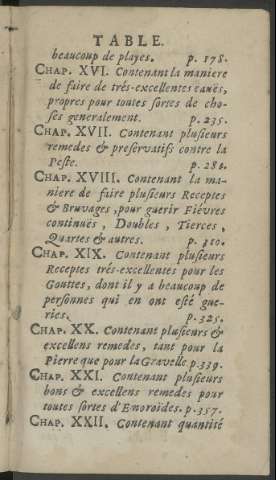 TABLE.
beaucoup de playes. p. 178.
CHAP. XVI. Contenant la maniere
de faire de trés-excellentes eauës,
propres pour toutes sortes de cho-
ses generalement. p. 235.
CHAP. XVII. Contenant plusieurs
remedes & preservatifs contre la
Peste. p. 280.
CHAP. XVIII. Contenant la ma-
niere de faire plusieurs Receptes
& Bruvages, pour guerir Fiévres
continuës, Doubles, Tierces,
Quartes & autres. p. 310.
CHAP. XIX. Contenant plusieurs
Receptes trés-excellentes pour les
Gouttes, dont il y a beaucoup de
personnes qui en ont esté gue-
ries. p. 325.
CHAP. XX. Contenant plusieurs &
excellens remedes, tant pour la
Pierre que pour la Gravelle. p. 339.
CHAP. XXI. Contenant plusieurs
bons & excellens remedes pour
toutes sortes d'Emoroïdes. p. 357.
CHAP. XXII. Contenant quantité